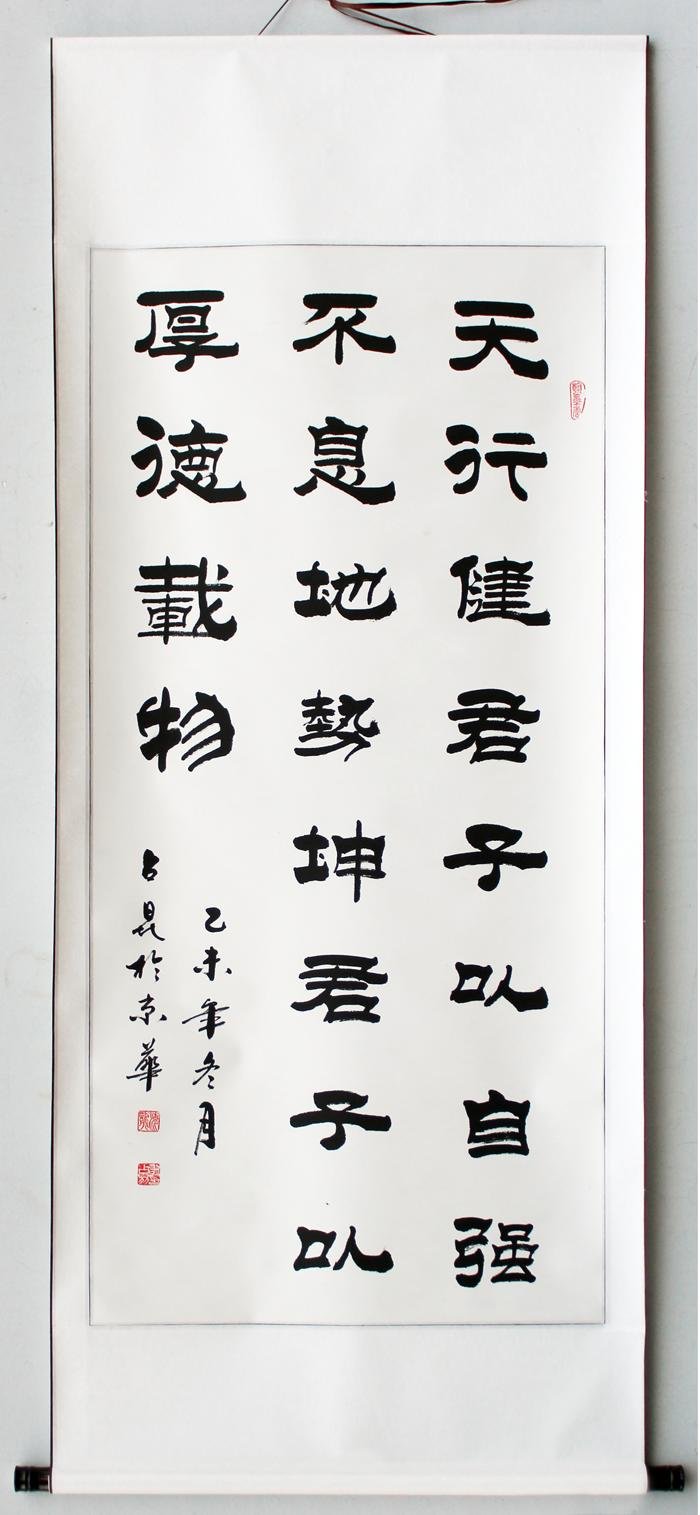 天行健君子以自强
不息地勢坤君子以
厚德載物
乙未年冬月
占昆於京華